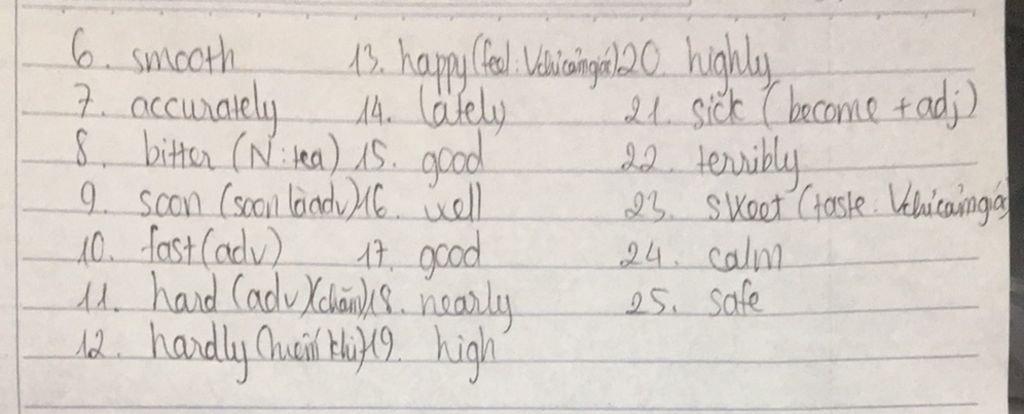 6. smooth 13. happy (feel: Vchỉ cảm giác) 20. highly
7. accurately 14. lately 21. sick (become + adj)
8. bitter (N: tea) 15. good 22. terribly
9. soon (soon là adv) 16. well 23. sweet (taste: Vchỉ cảm giác)
10. fast (adv) 17. good 24. calm
11. hard (adv) (chăm) 18. nearly 25. safe
12. hardly (hiếm khi) 19. high